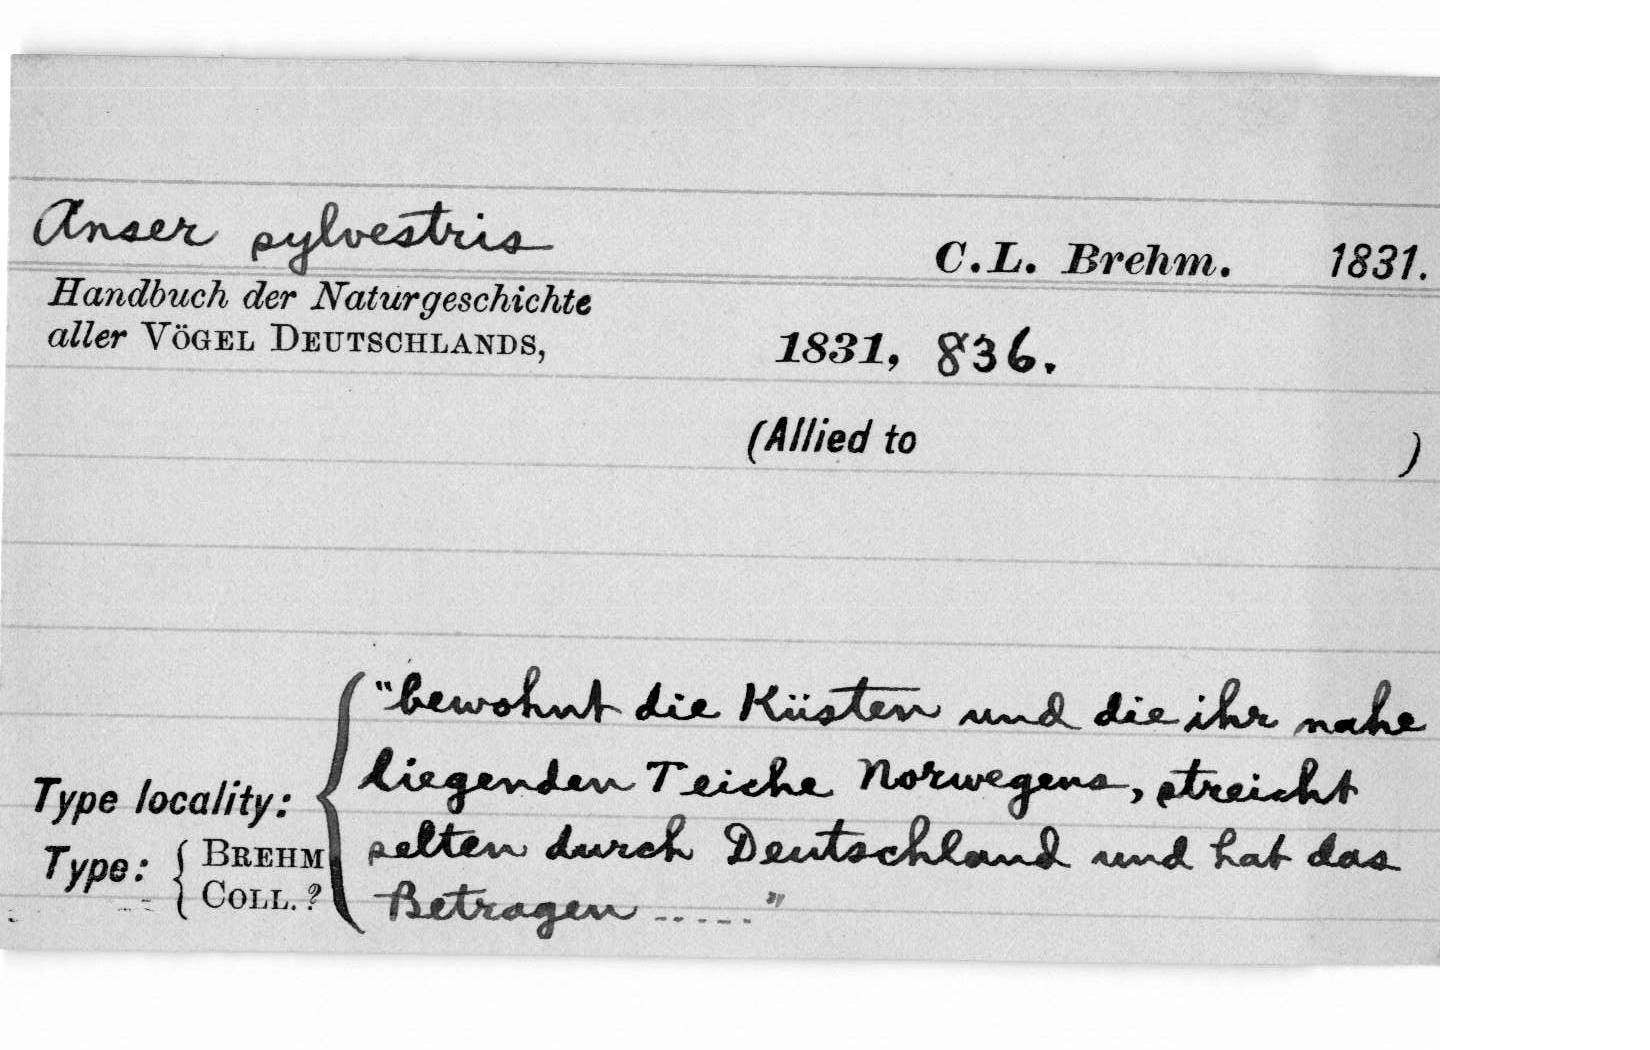 Anser sylvestris C.L. Brehm. 1831.
Handbuch der Naturgeschichte
aller VÖGEL DEUTSCHLANDS, 1831, 836.
(Allied to )
"bewohnt die Küsten und die ihr nahe
liegenden Teiche Norwegens, streicht
Type locality:
selten durch Deutschland und hat das
Type: { BREHM
COLL. ?
Betragen ....."